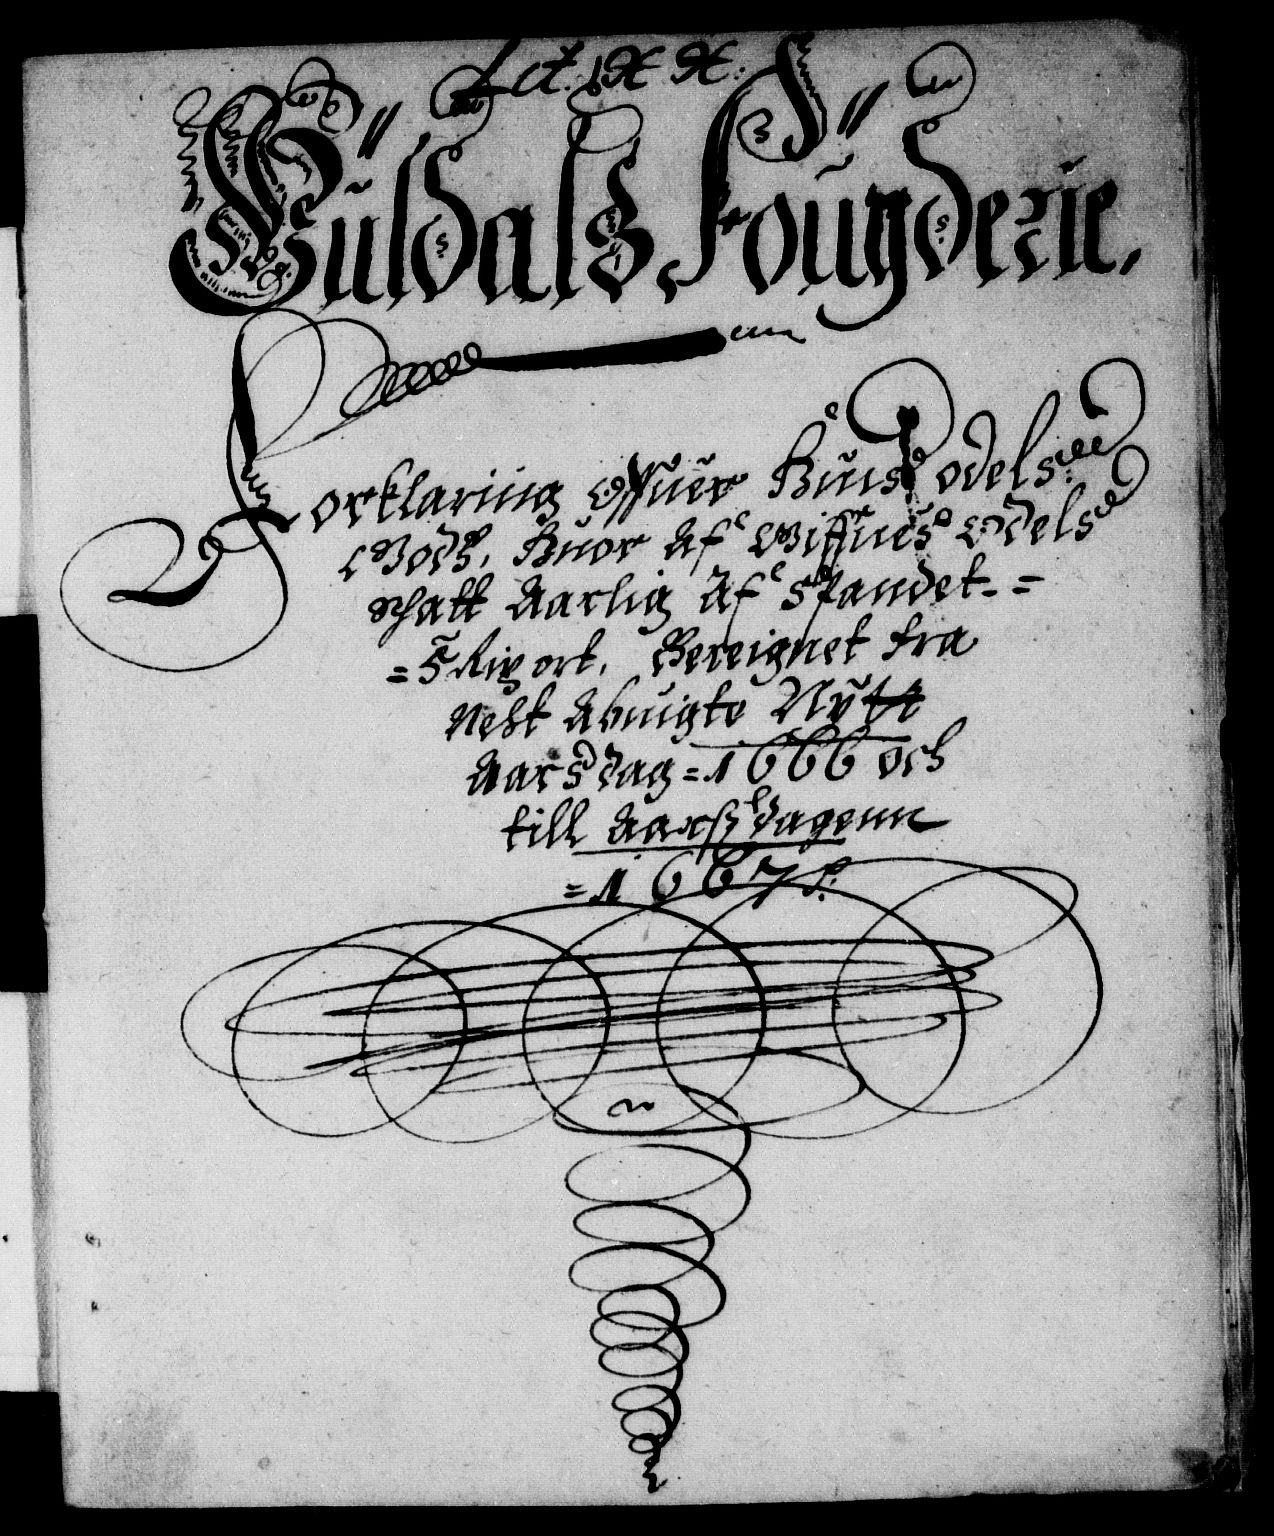 Lit. H H:
Guldals Fougderie.
Forklaring offuer Huis odels
Gods, Huor af giffues Odels
schatt Aarlig Af Spandet =
= ort. Bereignet fra
nest Abuigte Nÿtt
Aarsdag = 1666 och
till Aarsdagenn
= 1667